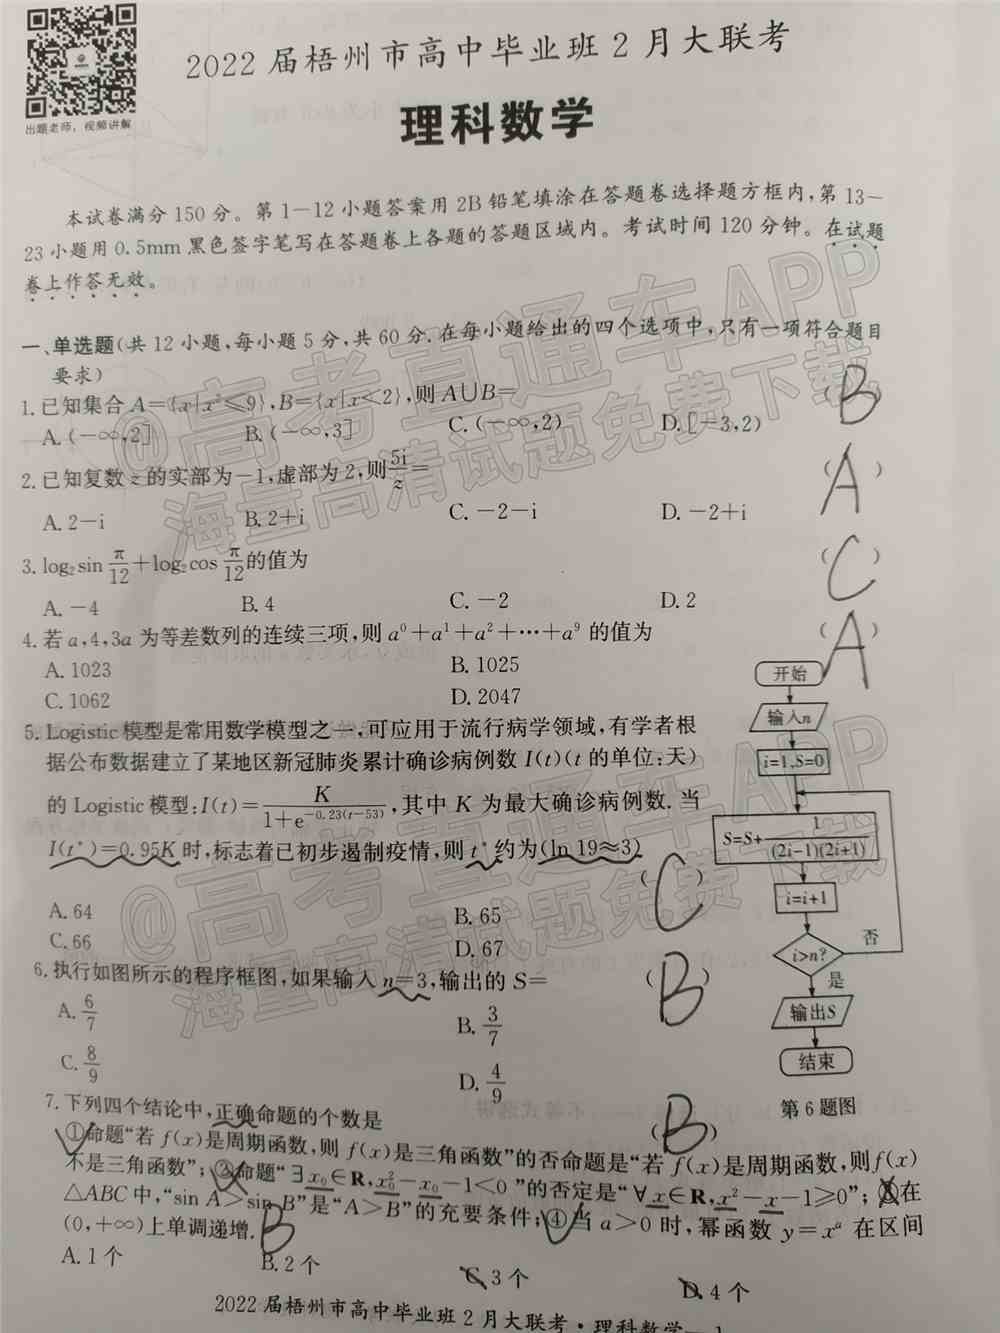 出题老师，视频讲解
2022届梧州市高中毕业班2月大联考
理科数学
本试卷满分150分。第1－12小题答案用2B铅笔填涂在答题卷选择题方框内，第13－
23小题用0.5mm黑色签字笔写在答题卷上各题的答题区域内。考试时间120分钟。在试题
卷上作答无效。
一、单选题(共12小题，每小题5分，共60分.在每小题给出的四个选项中，只有一项符合题目
要求)
1.已知集合A={x|x²≤9}，B={x|x<2}，则A∪B= B
A.(−∞,2] B.(−∞,3] C.(−∞,2) D.[−3,2)
2.已知复数z的实部为−1，虚部为2，则5i/z= (A)
A.2−i B.2+i C.−2−i D.−2+i
3.log₂sin π/12+log₂cos π/12的值为 (C)
A.−4 B.4 C.−2 D.2
4.若a,4,3a为等差数列的连续三项，则a⁰+a¹+a²+⋯+a⁹的值为 (A)
A.1023 B.1025
C.1062 D.2047
5.Logistic模型是常用数学模型之一，可应用于流行病学领域，有学者根
据公布数据建立了某地区新冠肺炎累计确诊病例数I(t)(t的单位：天)
的Logistic模型：I(t)=K/(1+e^(−0.23(t−53)))，其中K为最大确诊病例数.当
I(t*)=0.95K时，标志着已初步遏制疫情，则t*约为(ln 19≈3) (C)
A.64 B.65
C.66 D.67
6.执行如图所示的程序框图，如果输入n=3，输出的S= (B)
A.6/7 B.3/7
C.8/9 D.4/9
开始
输入n
i=1,S=0
S=S+1/((2i−1)(2i+1))
i=i+1
i>n?
否
是
输出S
结束
第6题图
7.下列四个结论中，正确命题的个数是 (B)
①命题“若f(x)是周期函数，则f(x)是三角函数”的否命题是“若f(x)是周期函数，则f(x)
不是三角函数”；②命题“∃x₀∈R,x₀²−x₀−1<0”的否定是“∀x∈R,x²−x−1≥0”；③在
△ABC中，“sin A>sin B”是“A>B”的充要条件；④当a>0时，幂函数y=xᵃ在区间
(0,+∞)上单调递增. B
A.1个 B.2个 C.3个 D.4个
2022届梧州市高中毕业班2月大联考·理科数学—1
@高考直通车APP
海量高清试题免费下载
@高考直通车APP
海量高清试题免费下载